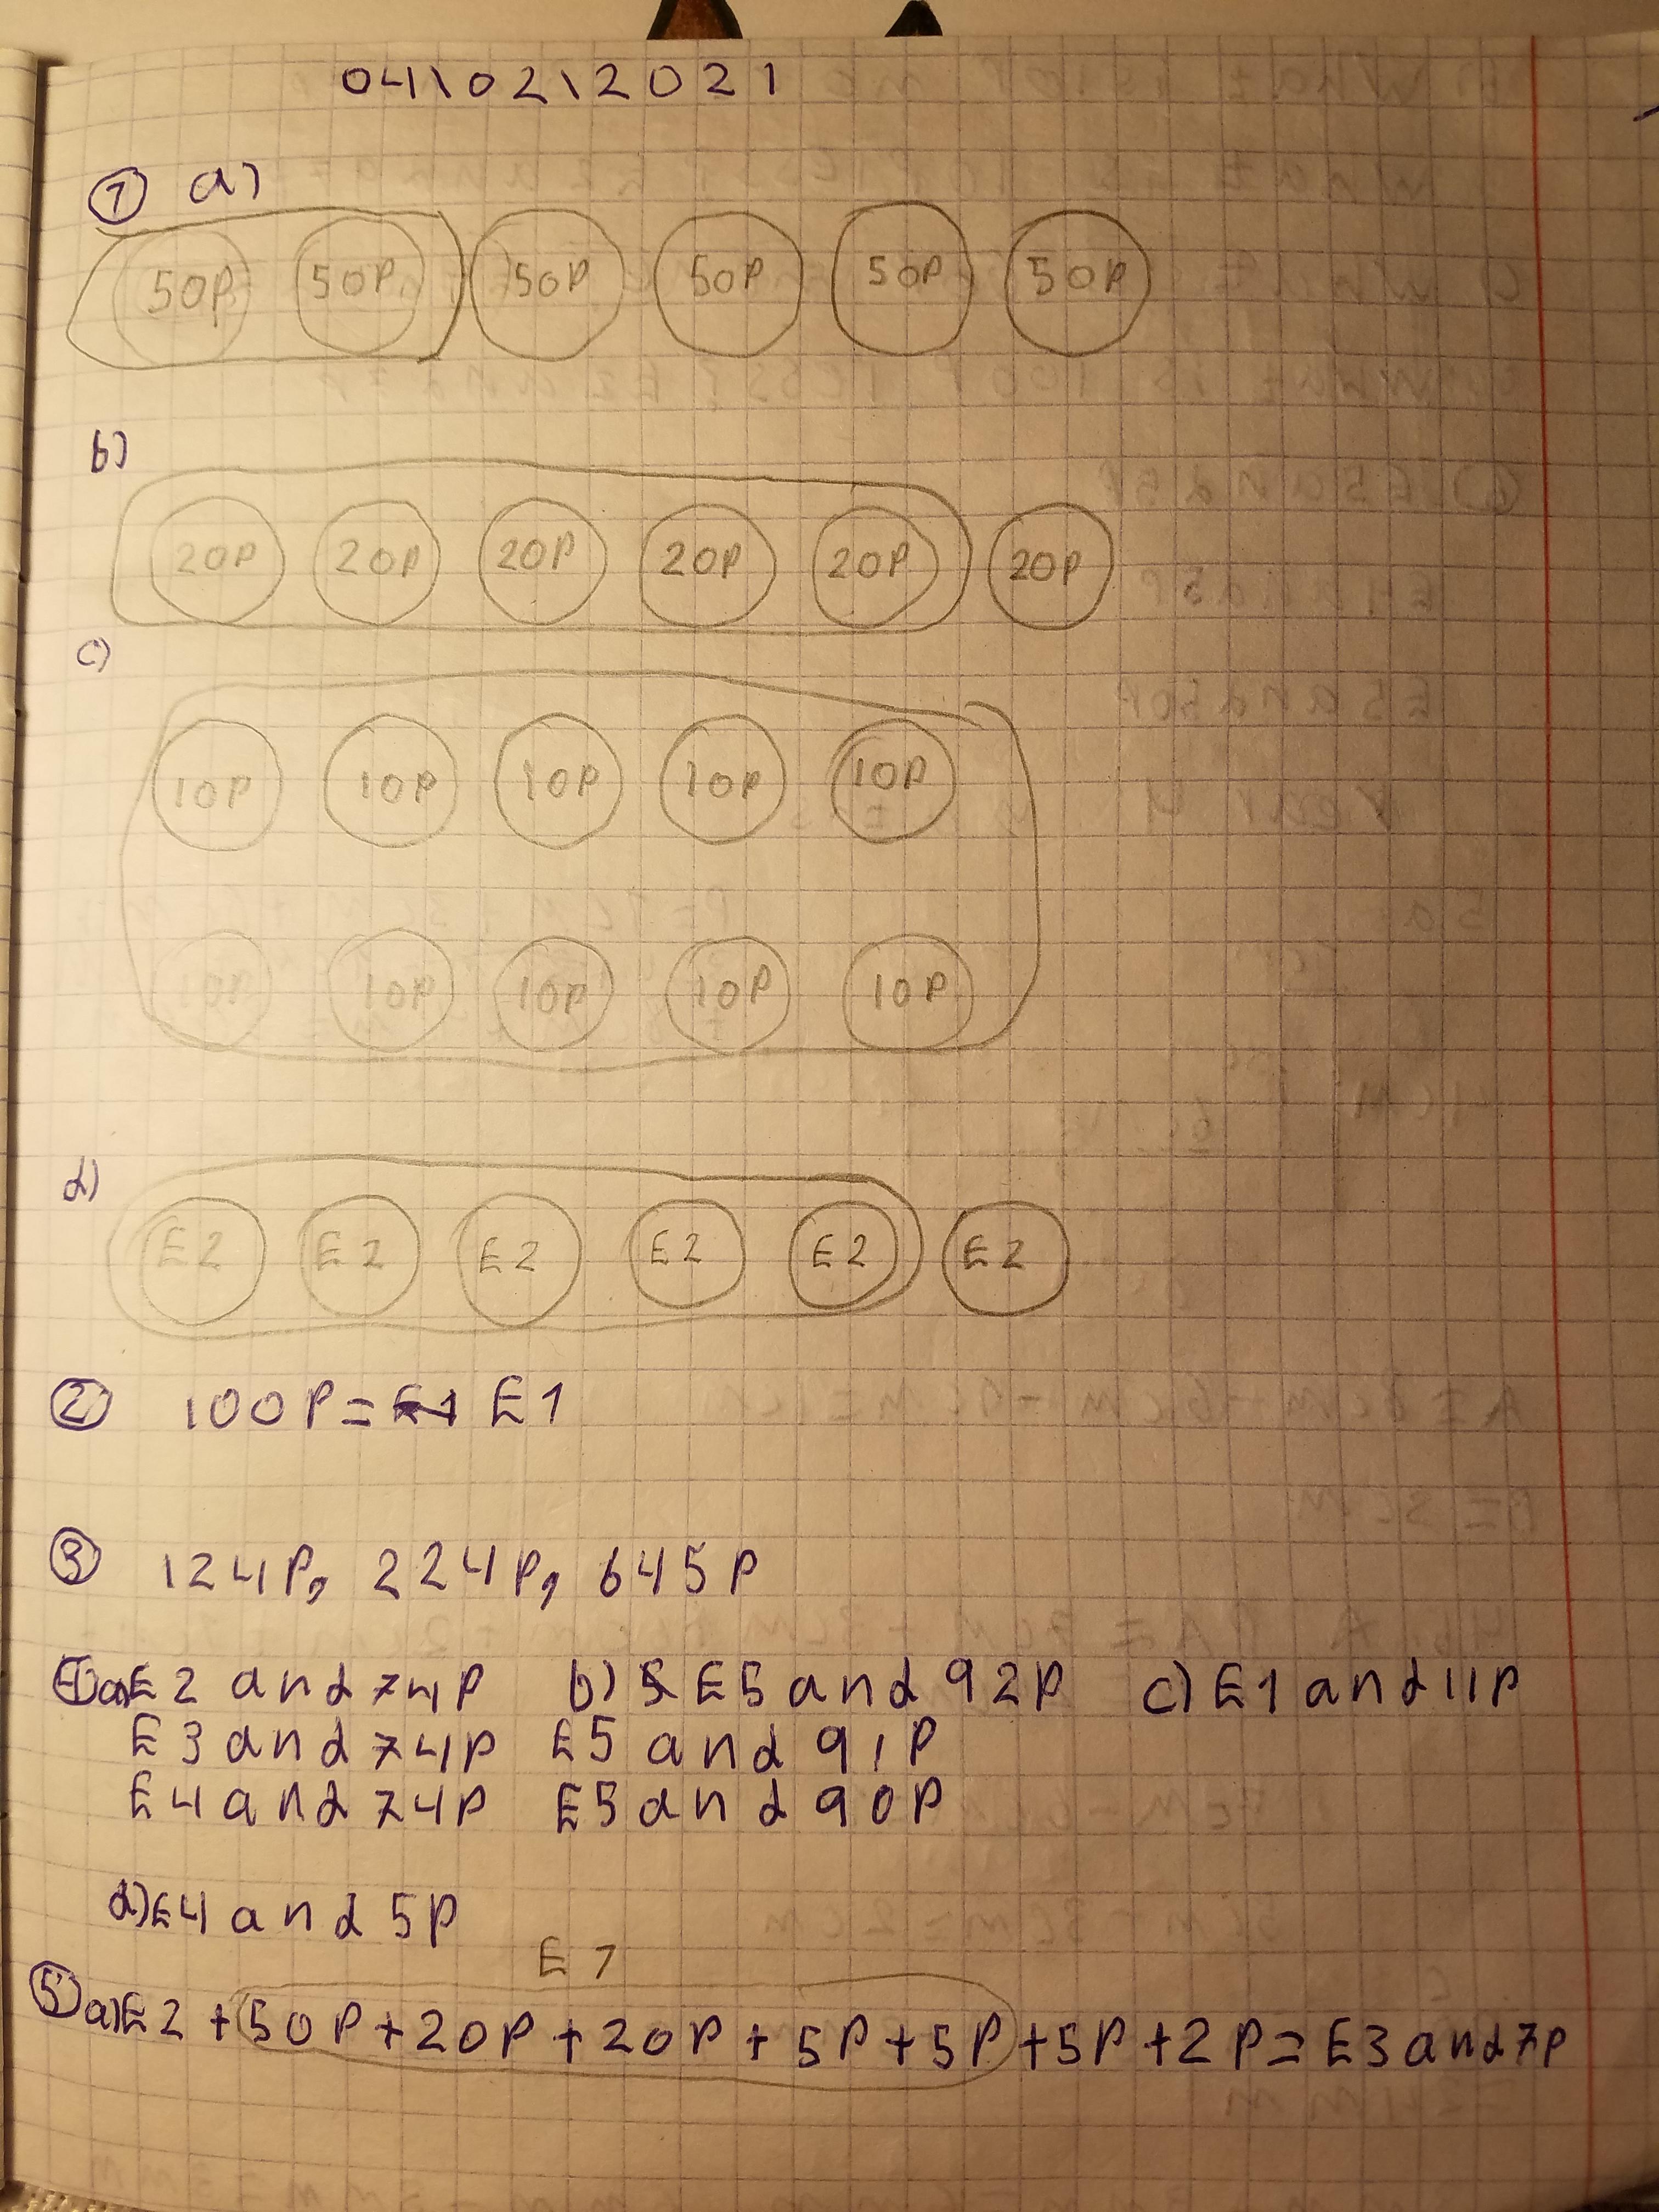 04\02\2021
1 a)
50P 50P 50P 50P 50P 50P
b)
20P 20P 20P 20P 20P 20P
c)
10P 10P 10P 10P 10P
10P 10P 10P 10P 10P
d)
E2 E2 E2 E2 E2 E2
2 100P = E1 E1
3 124P, 224P, 645P
4 a) E2 and 74P b) E5 and 92P c) E1 and 11P
E3 and 74P E5 and 91P
E4 and 74P E5 and 90P
d) E4 and 5P
E1
5 a) E2 + 50P + 20P + 20P + 5P + 5P + 5P + 2P = E3 and 7P